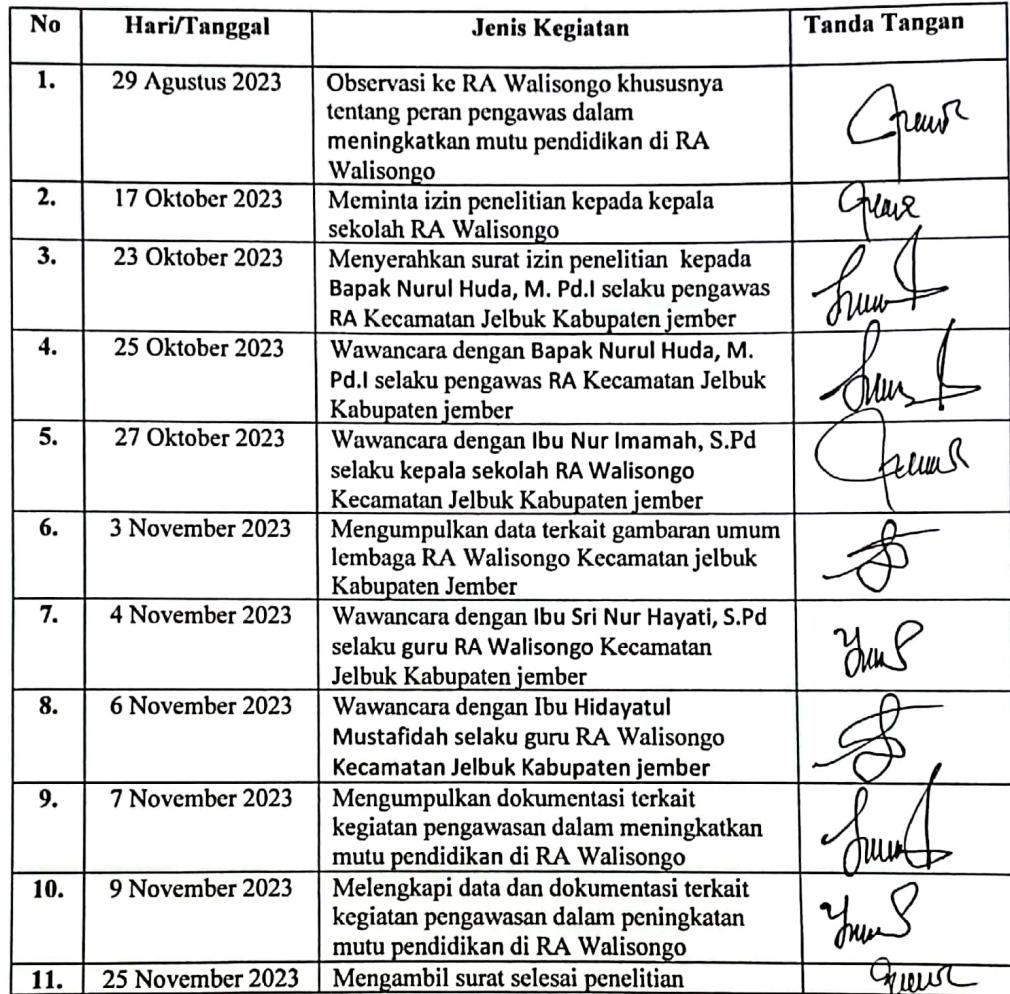 No Hari/Tanggal Jenis Kegiatan Tanda Tangan
1. 29 Agustus 2023 Observasi ke RA Walisongo khususnya
tentang peran pengawas dalam
meningkatkan mutu pendidikan di RA
Walisongo
2. 17 Oktober 2023 Meminta izin penelitian kepada kepala
sekolah RA Walisongo
3. 23 Oktober 2023 Menyerahkan surat izin penelitian kepada
Bapak Nurul Huda, M. Pd.I selaku pengawas
RA Kecamatan Jelbuk Kabupaten jember
4. 25 Oktober 2023 Wawancara dengan Bapak Nurul Huda, M.
Pd.I selaku pengawas RA Kecamatan Jelbuk
Kabupaten jember
5. 27 Oktober 2023 Wawancara dengan Ibu Nur Imamah, S.Pd
selaku kepala sekolah RA Walisongo
Kecamatan Jelbuk Kabupaten jember
6. 3 November 2023 Mengumpulkan data terkait gambaran umum
lembaga RA Walisongo Kecamatan jelbuk
Kabupaten Jember
7. 4 November 2023 Wawancara dengan Ibu Sri Nur Hayati, S.Pd
selaku guru RA Walisongo Kecamatan
Jelbuk Kabupaten jember
8. 6 November 2023 Wawancara dengan Ibu Hidayatul
Mustafidah selaku guru RA Walisongo
Kecamatan Jelbuk Kabupaten jember
9. 7 November 2023 Mengumpulkan dokumentasi terkait
kegiatan pengawasan dalam meningkatkan
mutu pendidikan di RA Walisongo
10. 9 November 2023 Melengkapi data dan dokumentasi terkait
kegiatan pengawasan dalam peningkatan
mutu pendidikan di RA Walisongo
11. 25 November 2023 Mengambil surat selesai penelitian